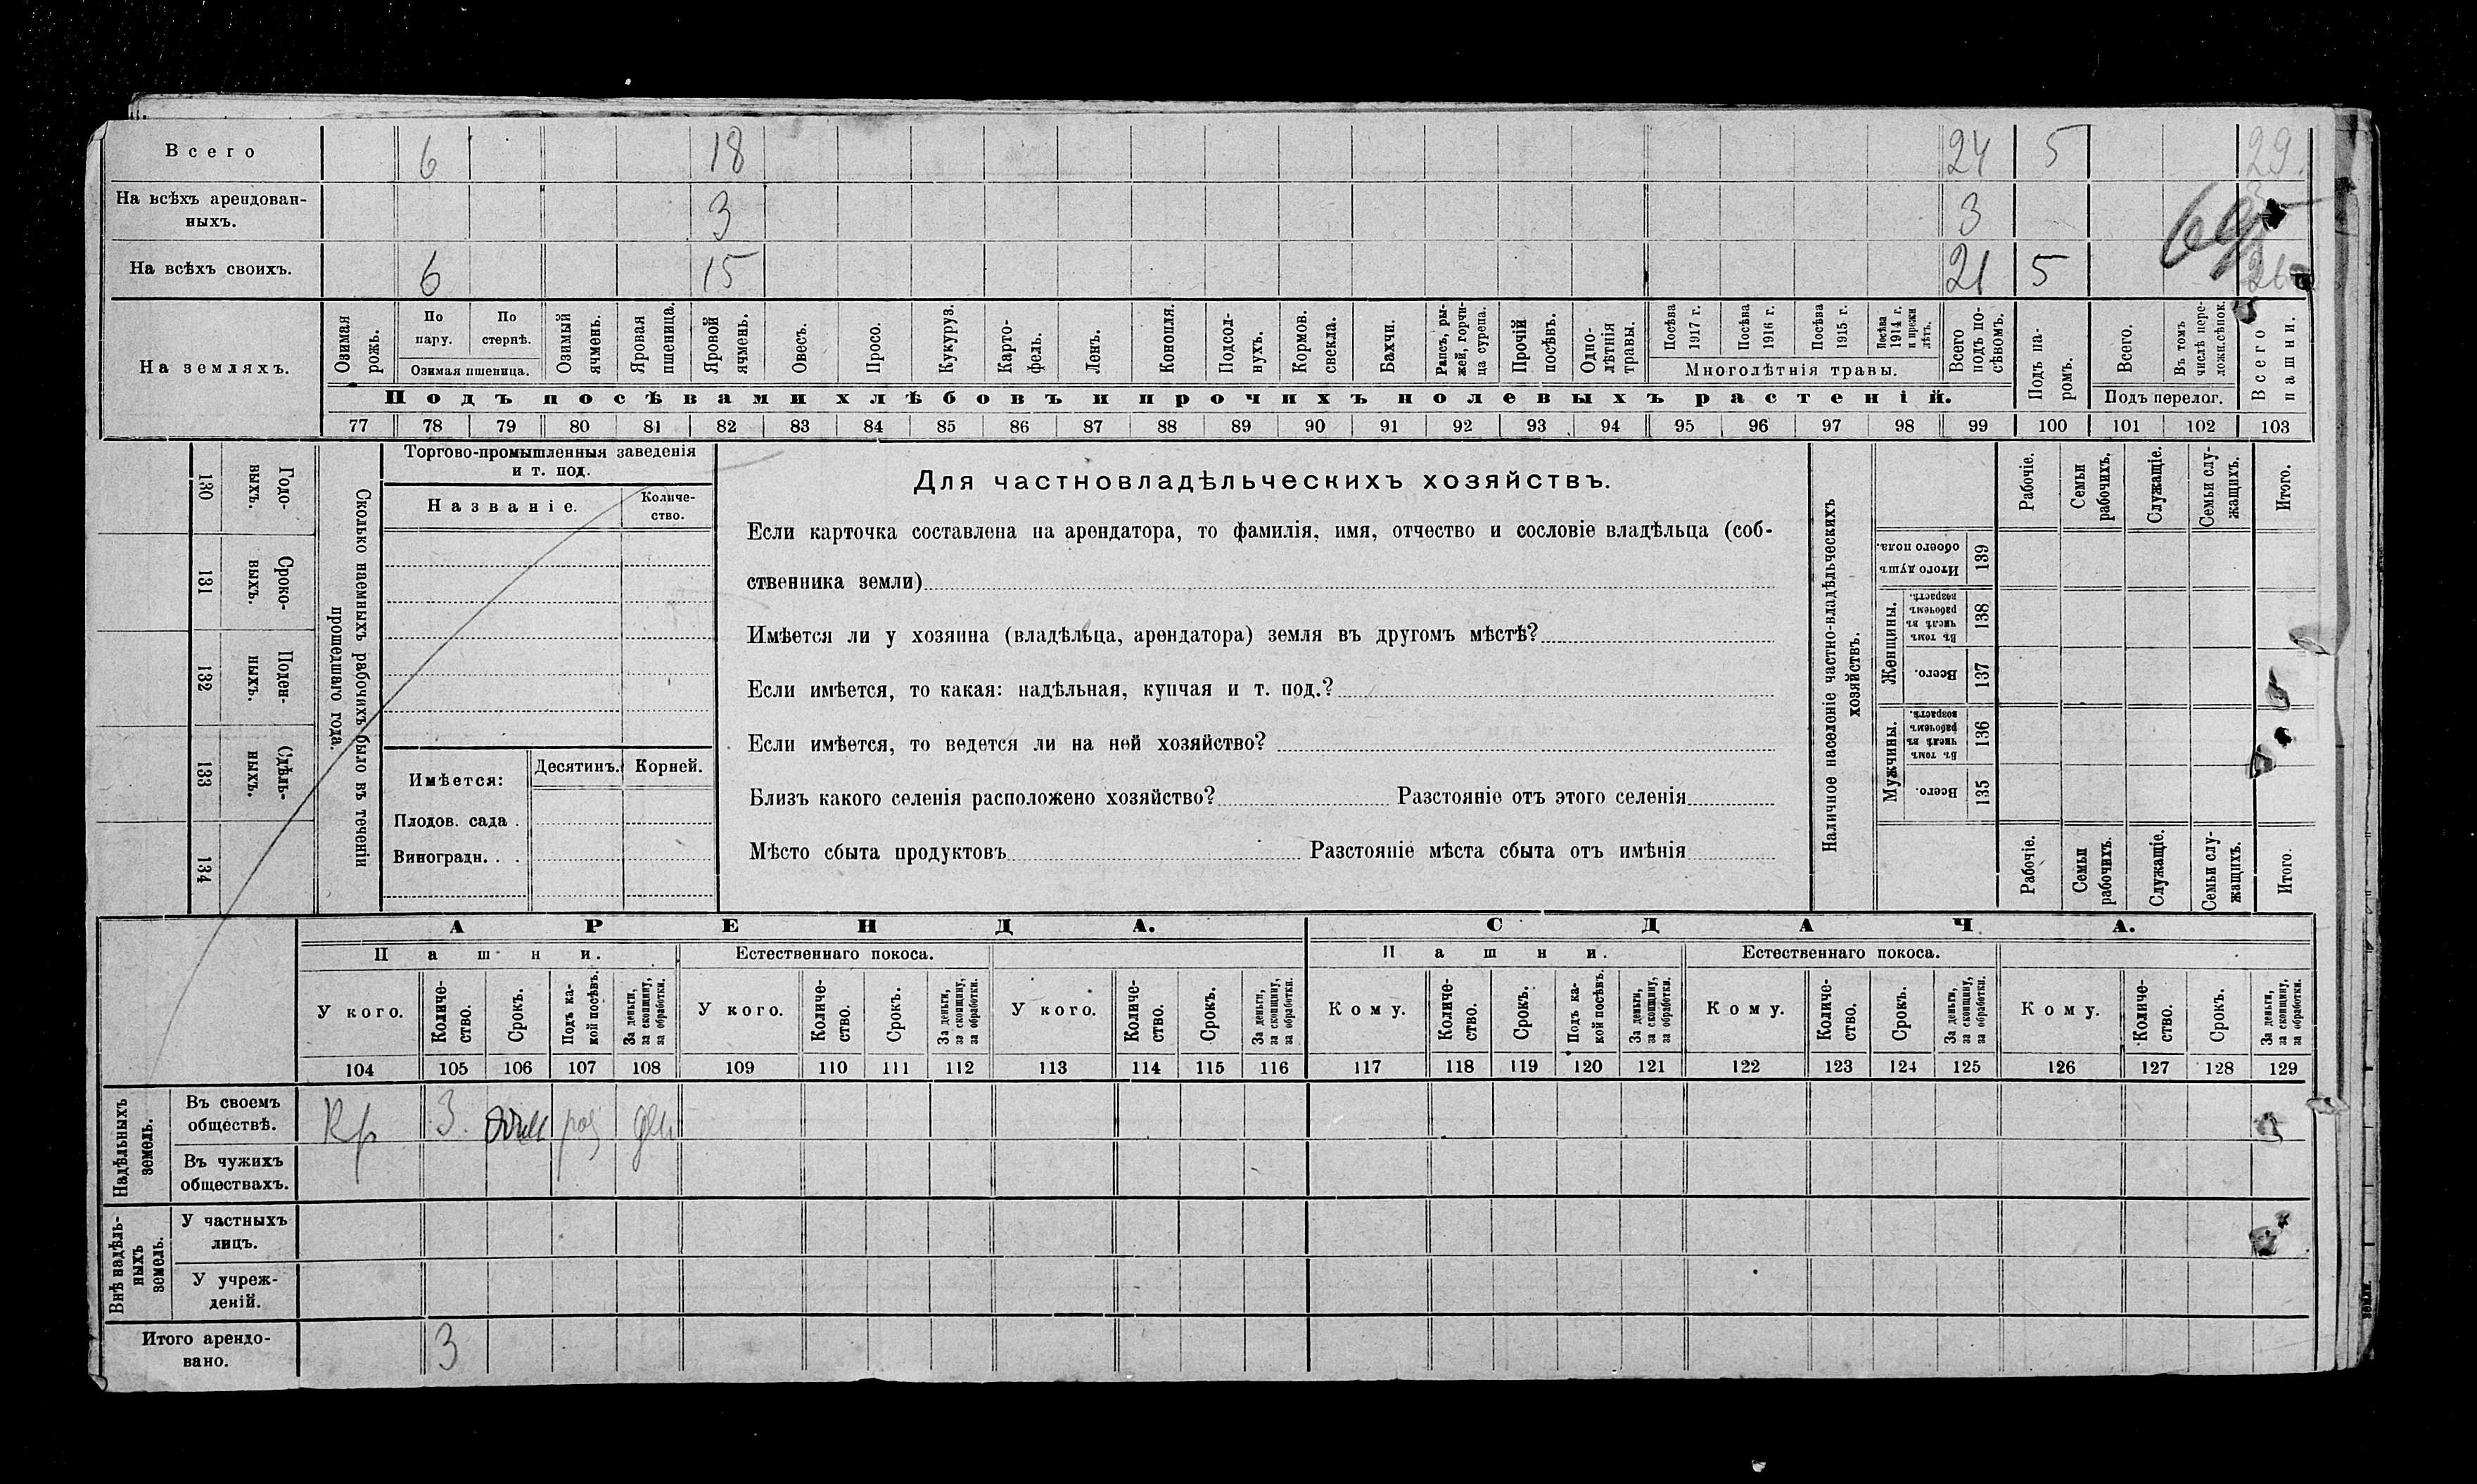 Всего 6 18 24 5 29
На всѣхъ арендован-
ныхъ. 3 3
69
На всѣхъ своихъ. 6 15 21 5
На земляхъ.
Озимая рожь.
По пару.
По стернѣ.
Озимая пшеница.
Озимый ячмень.
Яровая пшеница.
Яровой ячмень.
Овесъ.
Просо.
Кукуруз.
Карто-
фель.
Ленъ.
Конопля.
Подсол-
нухъ.
Кормов.
свекла.
Бахчи.
Рапсъ, ры-
жей, горчи-
ца сурепа.
Прочій
посѣвъ.
Одно-
лѣтнія
травы.
Посѣва
1917 г.
Посѣва
1916 г.
Посѣва
1915 г.
Посѣва
1914 г.
и прежн
лѣтъ.
Многолѣтнія травы.
Всего
подъ по-
сѣвомъ.
Подъ па-
ромъ.
Всего.
Въ томъ
числѣ пере-
ложн.сѣнок.
Подъ перелог.
Всего
пашни.
Подъ посѣвами хлѣбовъ и прочихъ полевыхъ растеній.
77 78 79 80 81 82 83 84 85 86 87 88 89 90 91 92 93 94 95 96 97 98 99 100 101 102 103
Сколько наемныхъ рабочихъ было въ теченіи
прошедшаго года.
Годо-
выхъ.
130
Сроко-
выхъ.
131
Поден-
ныхъ.
132
Сдѣль-
ныхъ.
133
134
Торгово-промышленныя заведенія
и т. под.
Названіе.
Количе-
ство.
Имѣется:
Десятинъ. Корней.
Плодов. сада .
Виноградн. . .
Для частновладѣльческихъ хозяйствъ.
Если карточка составлена на арендатора, то фамилія, имя, отчество и сословіе владѣльца (соб-
ственника земли)
Имѣется ли у хозяина (владѣльца, арендатора) земля въ другомъ мѣстѣ?
Если имѣется, то какая: надѣльная, купчая и т. под.?
Если имѣется, то ведется ли на ней хозяйство?
Близъ какого селенія расположено хозяйство? Разстояніе отъ этого селенія
Мѣсто сбыта продуктовъ Разстояніе мѣста сбыта отъ имѣнія
Наличное населеніе частно-владѣльческихъ
хозяйствъ.
Рабочіе.
Семьи
рабочихъ.
Служащіе.
Семьи слу-
жащихъ.
Итого.
Итого душъ
обоего пола.
139
Женщины.
Въ томъ
числѣ въ
рабочемъ
возрастѣ.
138
Всего.
137
Мужчины.
Въ томъ
числѣ въ
рабочемъ
возрастѣ.
136
Всего.
135
Рабочіе.
Семьи
рабочихъ.
Служащіе.
Семьи слу-
жащихъ.
Итого.
АРЕНДА. СДАЧА.
Пашни. Естественнаго покоса. Пашни. Естественнаго покоса.
У кого.
Количе-
ство.
Срокъ.
Подъ ка-
кой посѣвъ.
За деньги,
за скопщину,
за обработки.
У кого.
Количе-
ство.
Срокъ.
За деньги,
за скопщину,
за обработки.
У кого.
Количе-
ство.
Срокъ.
За деньги,
за скопщину,
за обработки.
Кому.
Количе-
ство.
Срокъ.
Подъ ка-
кой посѣвъ.
За деньги,
за скопщину,
за обработки.
Кому.
Количе-
ство.
Срокъ.
За деньги,
за скопщину,
за обработки.
Кому.
Количе-
ство.
Срокъ.
За деньги,
за скопщину,
за обработки.
104 105 106 107 108 109 110 111 112 113 114 115 116 117 118 119 120 121 122 123 124 125 126 127 128 129
Надѣльныхъ
земель.
Въ своемъ
обществѣ. Кр 3
Въ чужихъ
обществахъ.
Внѣ надѣль-
ныхъ
земель.
У частныхъ
лицъ.
У учреж-
деній.
Итого арендо-
вано. 3